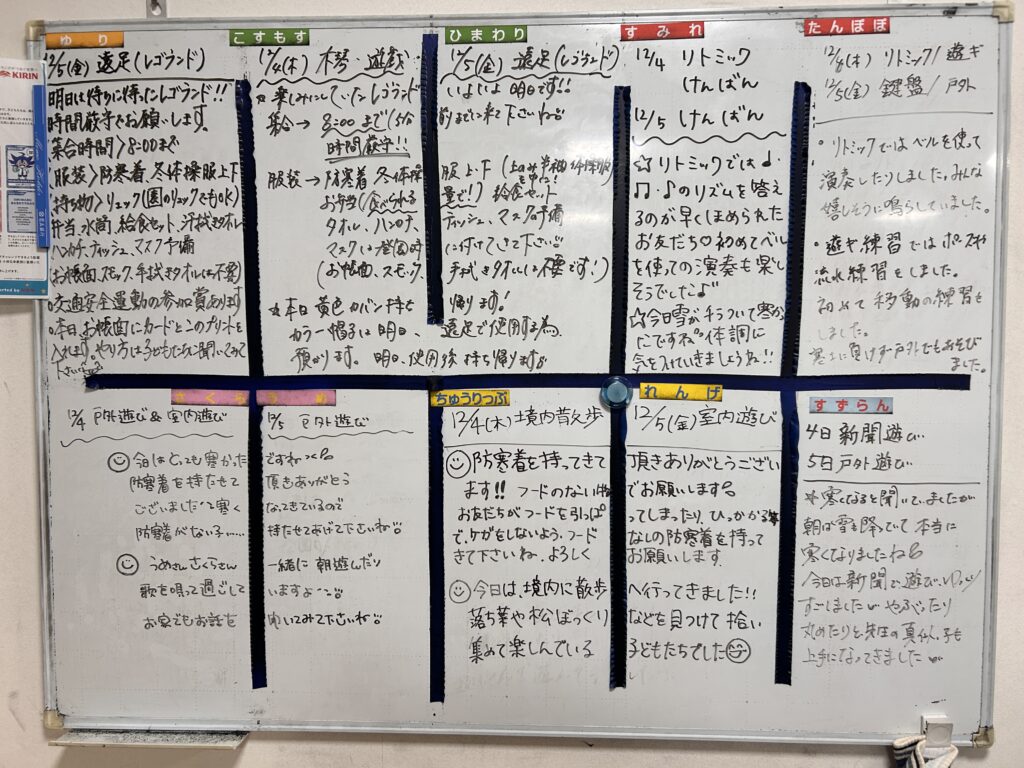 KIRIN
ゆり
12/5(金) 遠足(レゴランド)
明日は待ちに待ったレゴランド!!
時間厳守でお願いします。
集合時間〉8:00まで
服装〉防寒着、冬体操服上下
持ち物〉リュック(園のリュックでもOK)
弁当、水筒、給食セット、汗拭きタオル
ハンカチ、ティッシュ、マスク予備
(お帳面、スモック、手拭きタオルは不要)
○交通安全運動の参加賞あります
○本日、お帳面にカードとこのプリントを
入れます。やり方は子どもたちに聞いてみて
下さい
こすもす ひまわり
12/4(木) 琴・遊戯 12/5(金) 遠足(レゴランド)
☆楽しみにしていたレゴランド いよいよ明日です!!
集合→ 8:00まで 時間までに来て下さいね
時間厳守!!
服装→防寒着 冬体操 服上下
お弁当(食べられる 量で!) 給食セット
タオル、ハンカチ、ティッシュ、マスク予備
マスクは登園時 に付けてきて下さい
(お帳面、スモック、 手拭きタオルは不要です!)
☆本日 黄色カバン持ち 帰ります!
カラー帽子は明日、 遠足で使用する為、
預かります。明日、使用後 持ち帰ります
すみれ
12/4 リトミック
けんばん
12/5 けんばん
☆リトミックでは♩・
♫・♪のリズムを答え
るのが早くほめられた
お友だち♡初めてベル
を使っての演奏も楽し
そうでした♪
☆今日雪がチラついて寒か
ったですね。体調に
気を付けていきましょうね!!
たんぽぽ
12/4(木) リトミック/遊ギ
12/5(金) 鍵盤/戸外
・リトミックではベルを使って
演奏したりしました。みんな
嬉しそうに鳴らしていました。
・遊ギ練習ではポーズや
流れ練習をしました。
初めて移動の練習を
しました。
寒さに負けず戸外でもあそび
ました。
さくら うめ
12/4 戸外遊び&室内遊び 12/5 戸外遊び
今日はとっても寒かった ですねっ
防寒着を持たせて 頂きありがとう
ございました 寒く なってきているので
防寒着がない子…… 持たせてあげて下さいね
うめさんさくらさん 一緒に朝遊んだり
歌を唄って過ごして いますよ
お家でもお話を 聞いてみて下さいね
ちゅうりっぷ れんげ
12/4(木) 境内散歩 12/5(金) 室内遊び
防寒着を持ってきて 頂きありがとうござい
ます!! フードのない物 でお願いします
お友だちがフードを引っぱ ってしまったり、ひっかかる事
で、ケガをしないよう、フード なしの防寒着を持って
きて下さいね、よろしく お願いします
今日は、境内に散歩 へ行ってきました!!
落ち葉や松ぼっくり などを見つけて拾い
集めて楽しんでいる 子どもたちでした
すずらん
4日 新聞遊び
5日 戸外遊び
☆寒くなると聞いていましたが
朝は雪も降っていて本当に
寒くなりましたね
今日は新聞で遊び、ゆっくり
すごしました やぶったり
丸めたりと先生の真似っ子も
上手になってきました